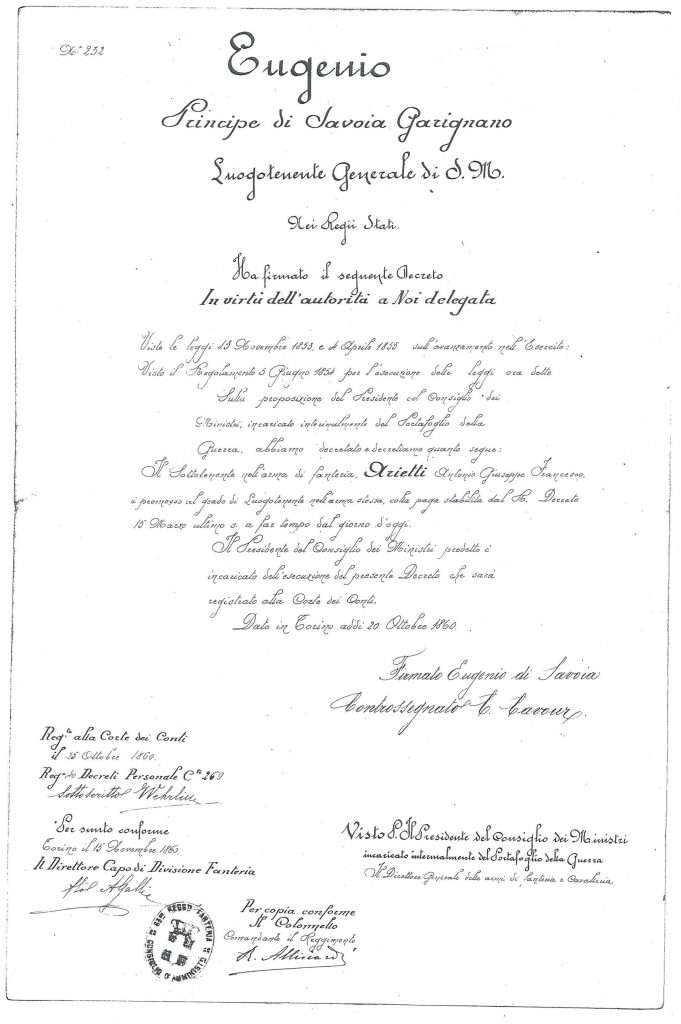 N.º 252
Eugenio
Principe di Savoia Carignano
Luogotenente Generale di S. M.
Nei Regii Stati.
Ha firmato il seguente Decreto
In virtù dell'autorità a Noi delegata
Viste le leggi 13 Novembre 1853, e 4 Aprile 1855 sull'avanzamento nell'Esercito:
Visto il Regolamento 5 Giugno 1854 per l'esecuzione delle leggi ora dette
Sulla proposizione del Presidente del Consiglio dei
Ministri, incaricato interinalmente del Portafoglio della
Guerra, abbiamo decretato e decretiamo quanto segue:
Il Sottotenente nell'arma di fanteria, Arietti Antonio Giuseppe Francesco,
è promosso al grado di Luogotenente nell'arma stessa, colla paga stabilita dal R. Decreto
15 Marzo ultimo s. a far tempo dal giorno d'oggi.
Il Presidente del Consiglio dei Ministri predetto è
incaricato dell'esecuzione del presente Decreto che sarà
registrato alla Corte dei Conti.
Dato in Torino addì 20 Ottobre 1860.
Firmato Eugenio di Savoia
Controssegnato C. Cavour.
Reg.to alla Corte dei Conti
il 25 Ottobre 1860.
Reg.ro Decreti Personale C.te
Sottoscritto Wehrlin
Per sunto conforme
Torino il 15 Novembre 1860
Il Direttore Capo di Divisione Fanteria
Visto P. Il Presidente del Consiglio dei Ministri
incaricato internalmente del Portafoglio della Guerra
Il Direttore Generale delle armi di Fanteria e Cavalleria
Per copia conforme
Il Colonnello
Comandante il Reggimento
REGG.º FANTERIA
CONSIGLIO D'AMMINIST.